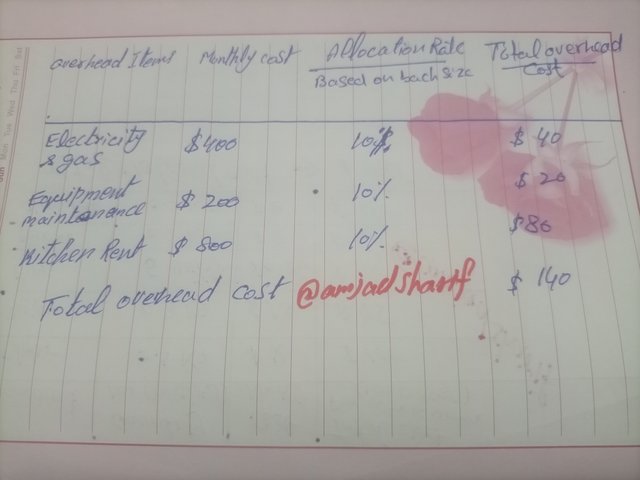 Overhead Items Monthly cost Allocation Rate Total overhead
Based on bach size Cost
Electricity $400 10%. $40
& gas
Equipment $200 10%. $20
maintenance
Kitchen Rent $800 10%. $80
Total overhead cost @amjadsharif $140
Mon Tue Wed Thu Fri Sat